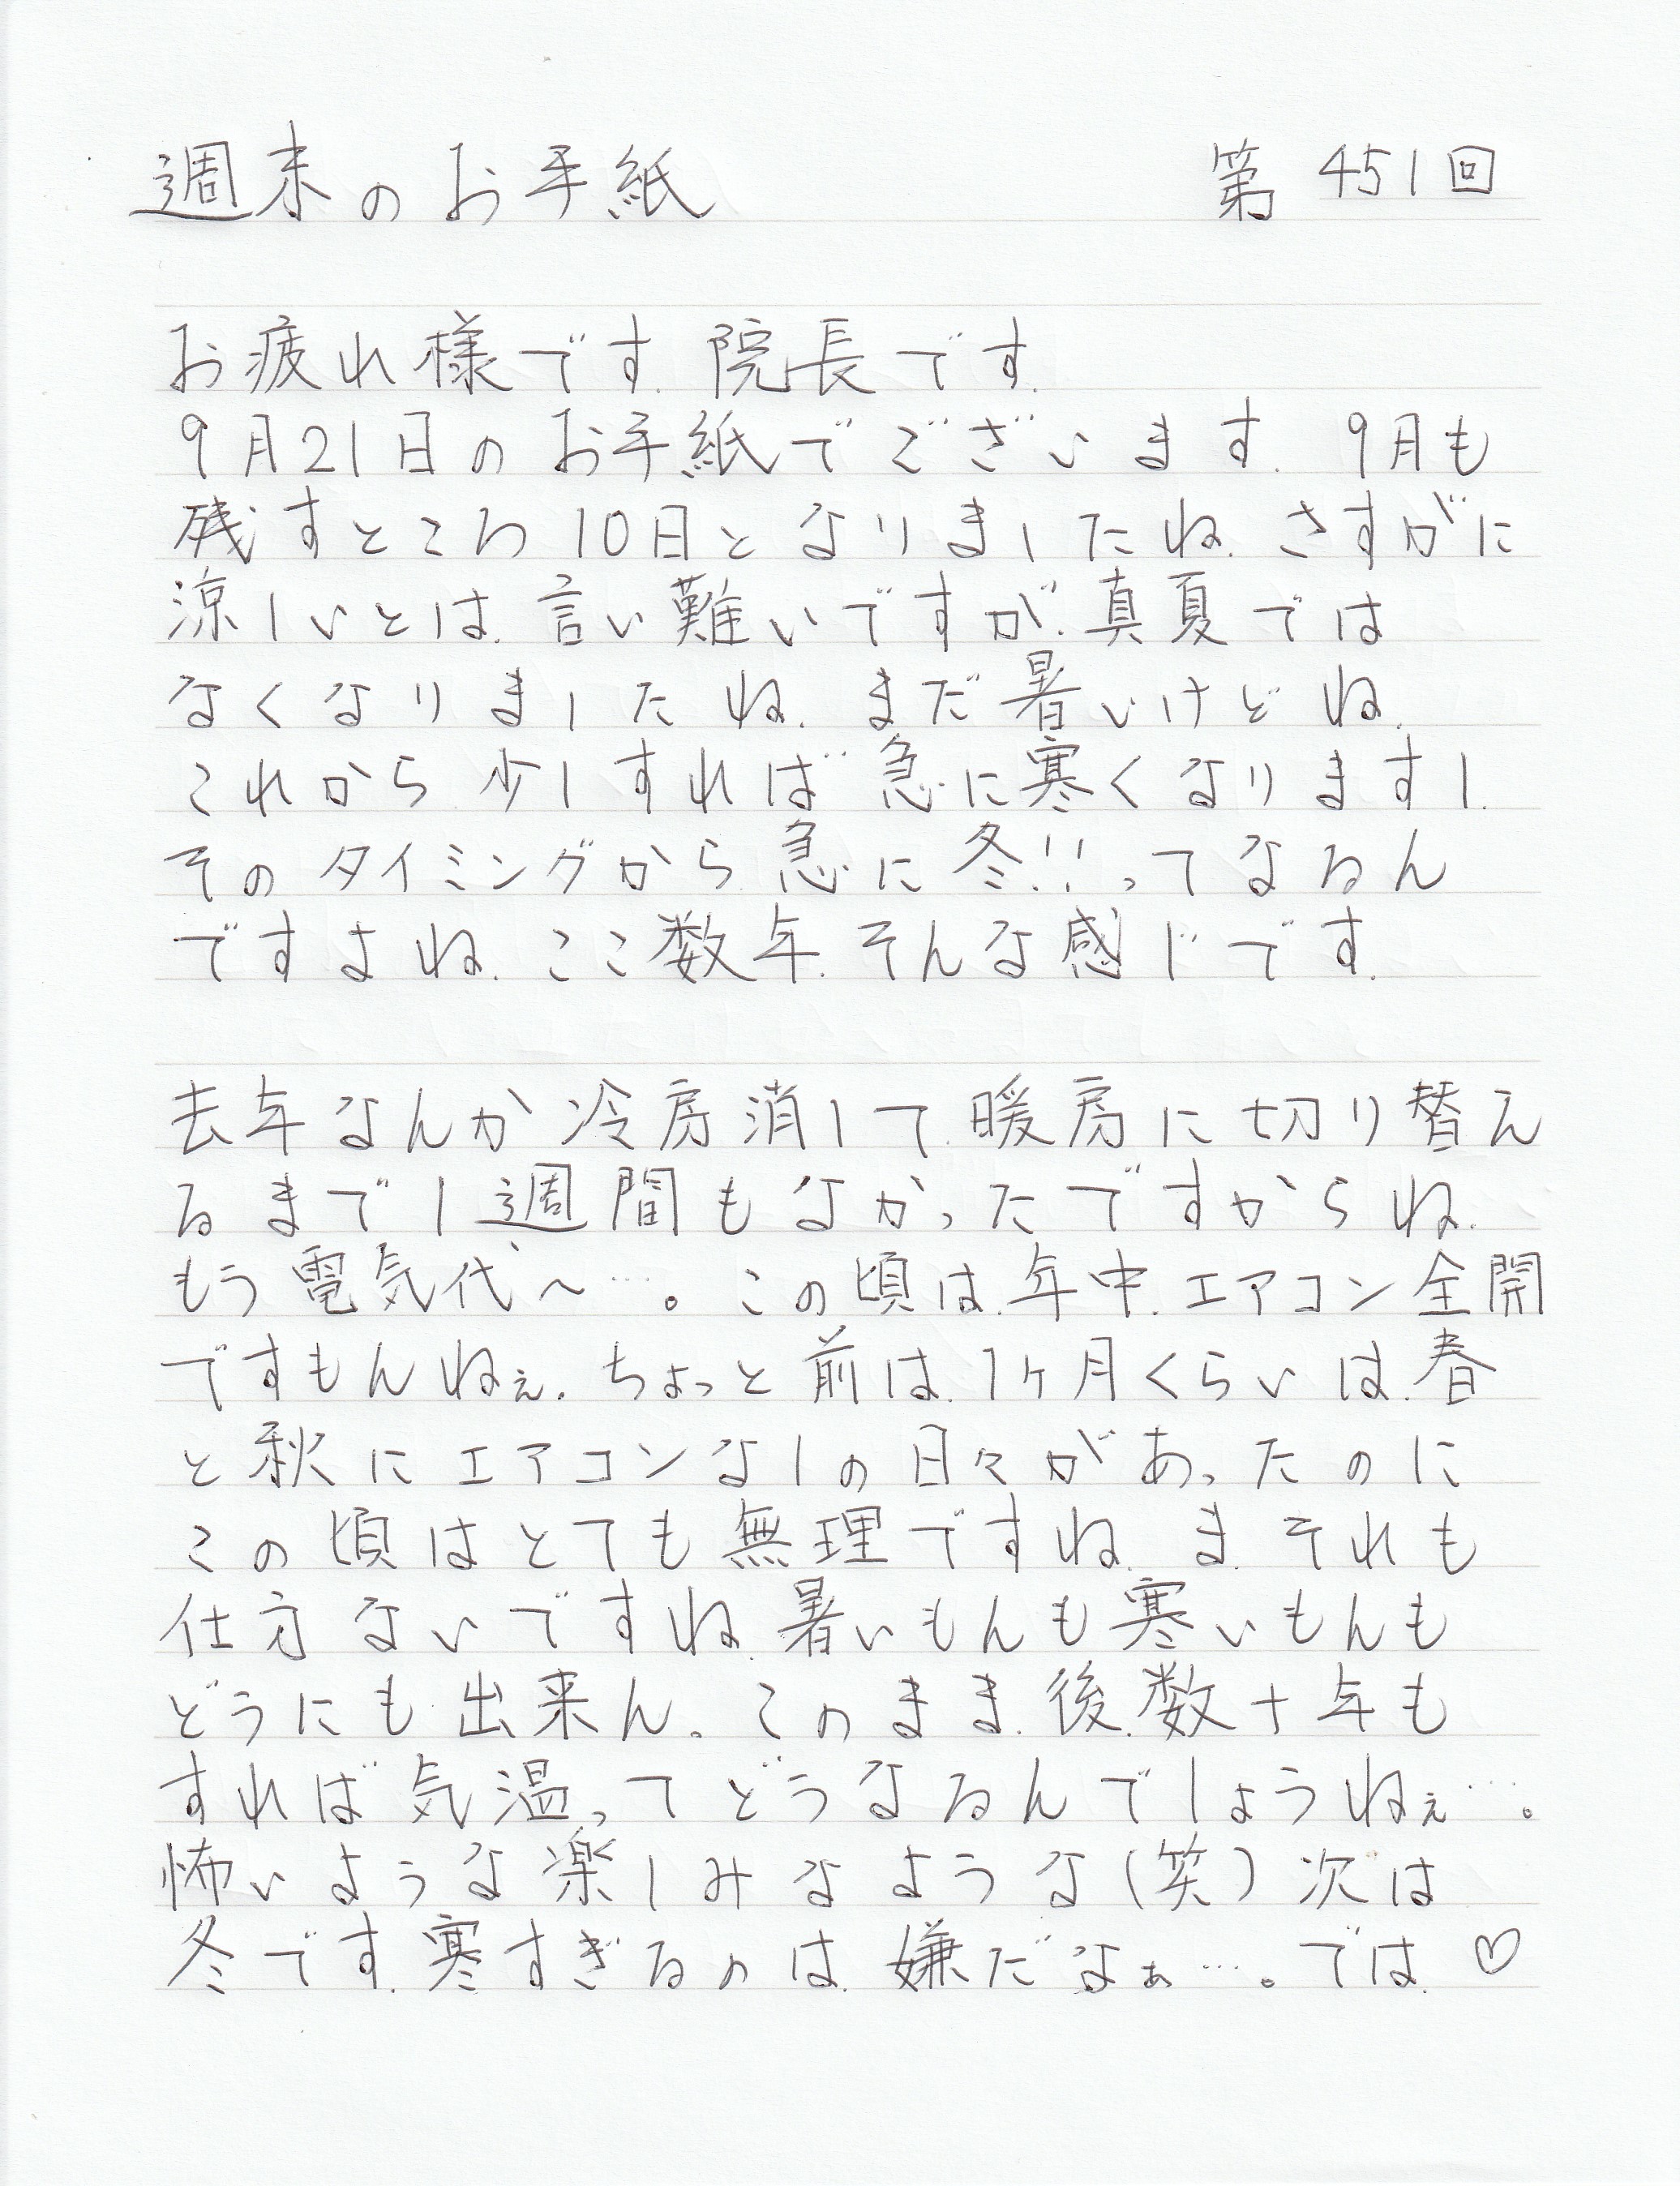 週末のお手紙 第451回
お疲れ様です. 院長です.
9月21日のお手紙でございます. 9月も
残すところ10日となりましたね. さすがに
涼しいとは. 言い難いですが. 真夏では
なくなりましたね. まだ暑いけどね.
これから少しすれば急に寒くなりますし.
そのタイミングから急に冬!!ってなるん
ですよね. ここ数年. そんな感じです.
去年なんか冷房消して. 暖房に切り替え
るまで1週間もなかったですからね.
もう電気代〜…。この頃は. 年中. エアコン全開
ですもんねぇ. ちょっと前は. 1ヶ月くらいは. 春
と秋にエアコンなしの日々があったのに
この頃はとても無理ですね. ま. それも
仕方ないですね. 暑いもんも寒いもんも
どうにも出来ん。このまま. 後. 数十年も
すれば気温ってどうなるんでしょうねぇ…。
怖いような楽しみなような(笑) 次は
冬です. 寒すぎるのは. 嫌だなぁ…。では. ♡